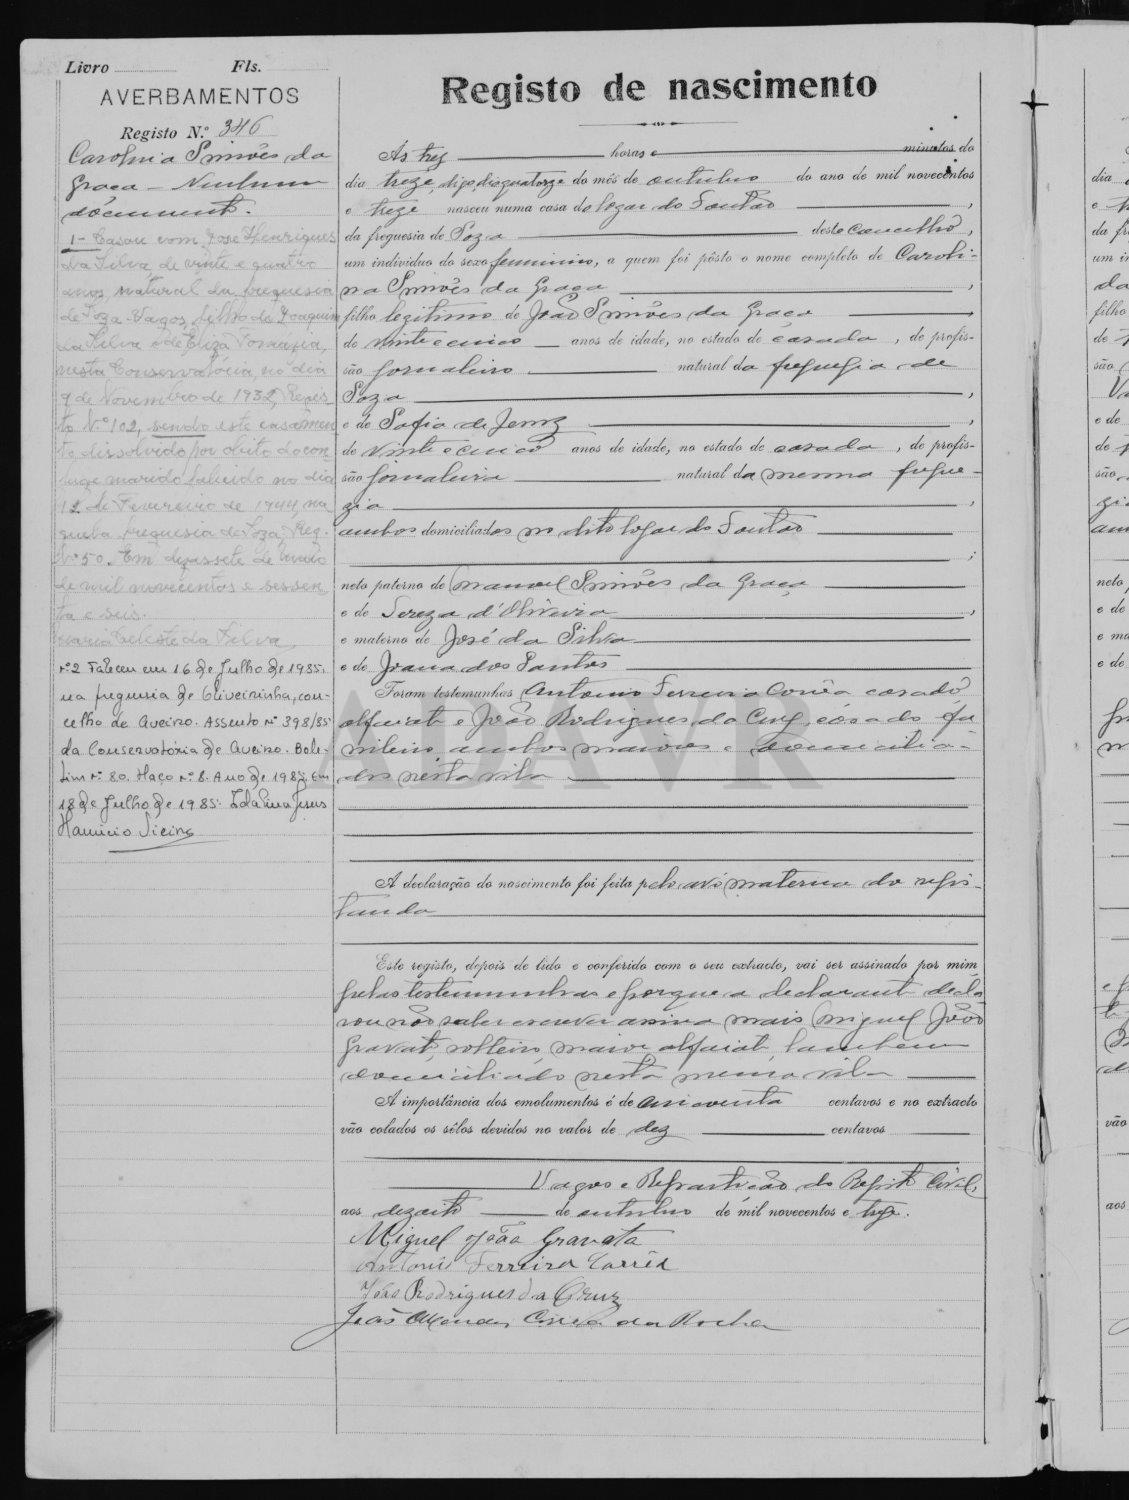 Livro Fls.
AVERBAMENTOS
Registo N.º 346
Carolina Simões da
Graça — Nenhum
documento.
1- Casou com José Henriques
da Silva, de vinte e quatro
anos, natural da freguesia
de Soza-Vagos, filho de Joaquim
da Silva e de Luiza
nesta Conservatória, no dia
9 de Novembro de 1932, Regis-
to N.º 102, sendo este casamen
to dissolvido por óbito do con-
juge marido falecido no dia
12 de Fevereiro de 1944, na
freguesia de Soza, Reg.
N.º 50. Em dezassete de Maio
de mil novecentos e sessen
ta e seis.
Maria Celeste da Silva
Nº 2 Faleceu em 16 de Julho de 1985.
na freguesia de Oliveirinha, con-
celho de Aveiro. Assento nº 398/85
da Conservatória de Aveiro. Bole-
tim nº 80. Maço nº 8. Ano de 1985. Em
18 de Julho de 1985. Idalina Jesus
Maurício Vieira
Registo de nascimento
As trez horas e minutos do
dia treze, digo dia quatorze do mês de outubro do ano de mil novecentos
e treze nasceu numa casa do logar do Soutão,
da freguesia de Soza deste concelho,
um indivíduo do sexo feminino, a quem foi pôsto o nome completo de Caroli-
na Simões da Graça,
filho legitimo de João Simões da Graça
de vinte e cinco anos de idade, no estado de casado, de profis-
são jornaleiro natural da freguesia de
Soza,
e de Sofia de Jesus,
de vinte e cinco anos de idade, no estado de casada, de profis-
são jornaleira natural da mesma fregue-
zia,
ambos domiciliados no dito logar do Soutão
;
neto paterno de Manuel Simões da Graça
e de Tereza d'Oliveira,
e materno de José da Silva
e de Joana dos Santos
Foram testemunhas Antonio Ferreira Corrêa casado
alfaiate e João Rodrigues da Cruz, casado fu
nileiro, ambos maiores e domicilia-
dos nesta vila
A declaração do nascimento foi feita pela avó materna do regis-
tando
Este registo, depois de lido e conferido com o seu extracto, vai ser assinado por mim
pelas testemunhas e porque a declarante decla
rou não saber escrever assina mais Miguel João
Gravato, solteiro, maior alfaiate, tambem
domiciliado nesta mesma vila
A importância dos emolumentos é de cincoenta centavos e no extracto
vão colados os sêlos devidos no valor de dez centavos
Vagos e Repartição do Registo Civil,
aos dezoito de outubro de mil novecentos e treze.
Miguel João Gravato
Antonio Ferreira Corrêa
João Rodrigues da Cruz
João Mendes Corrêa da Rocha
ADAVR